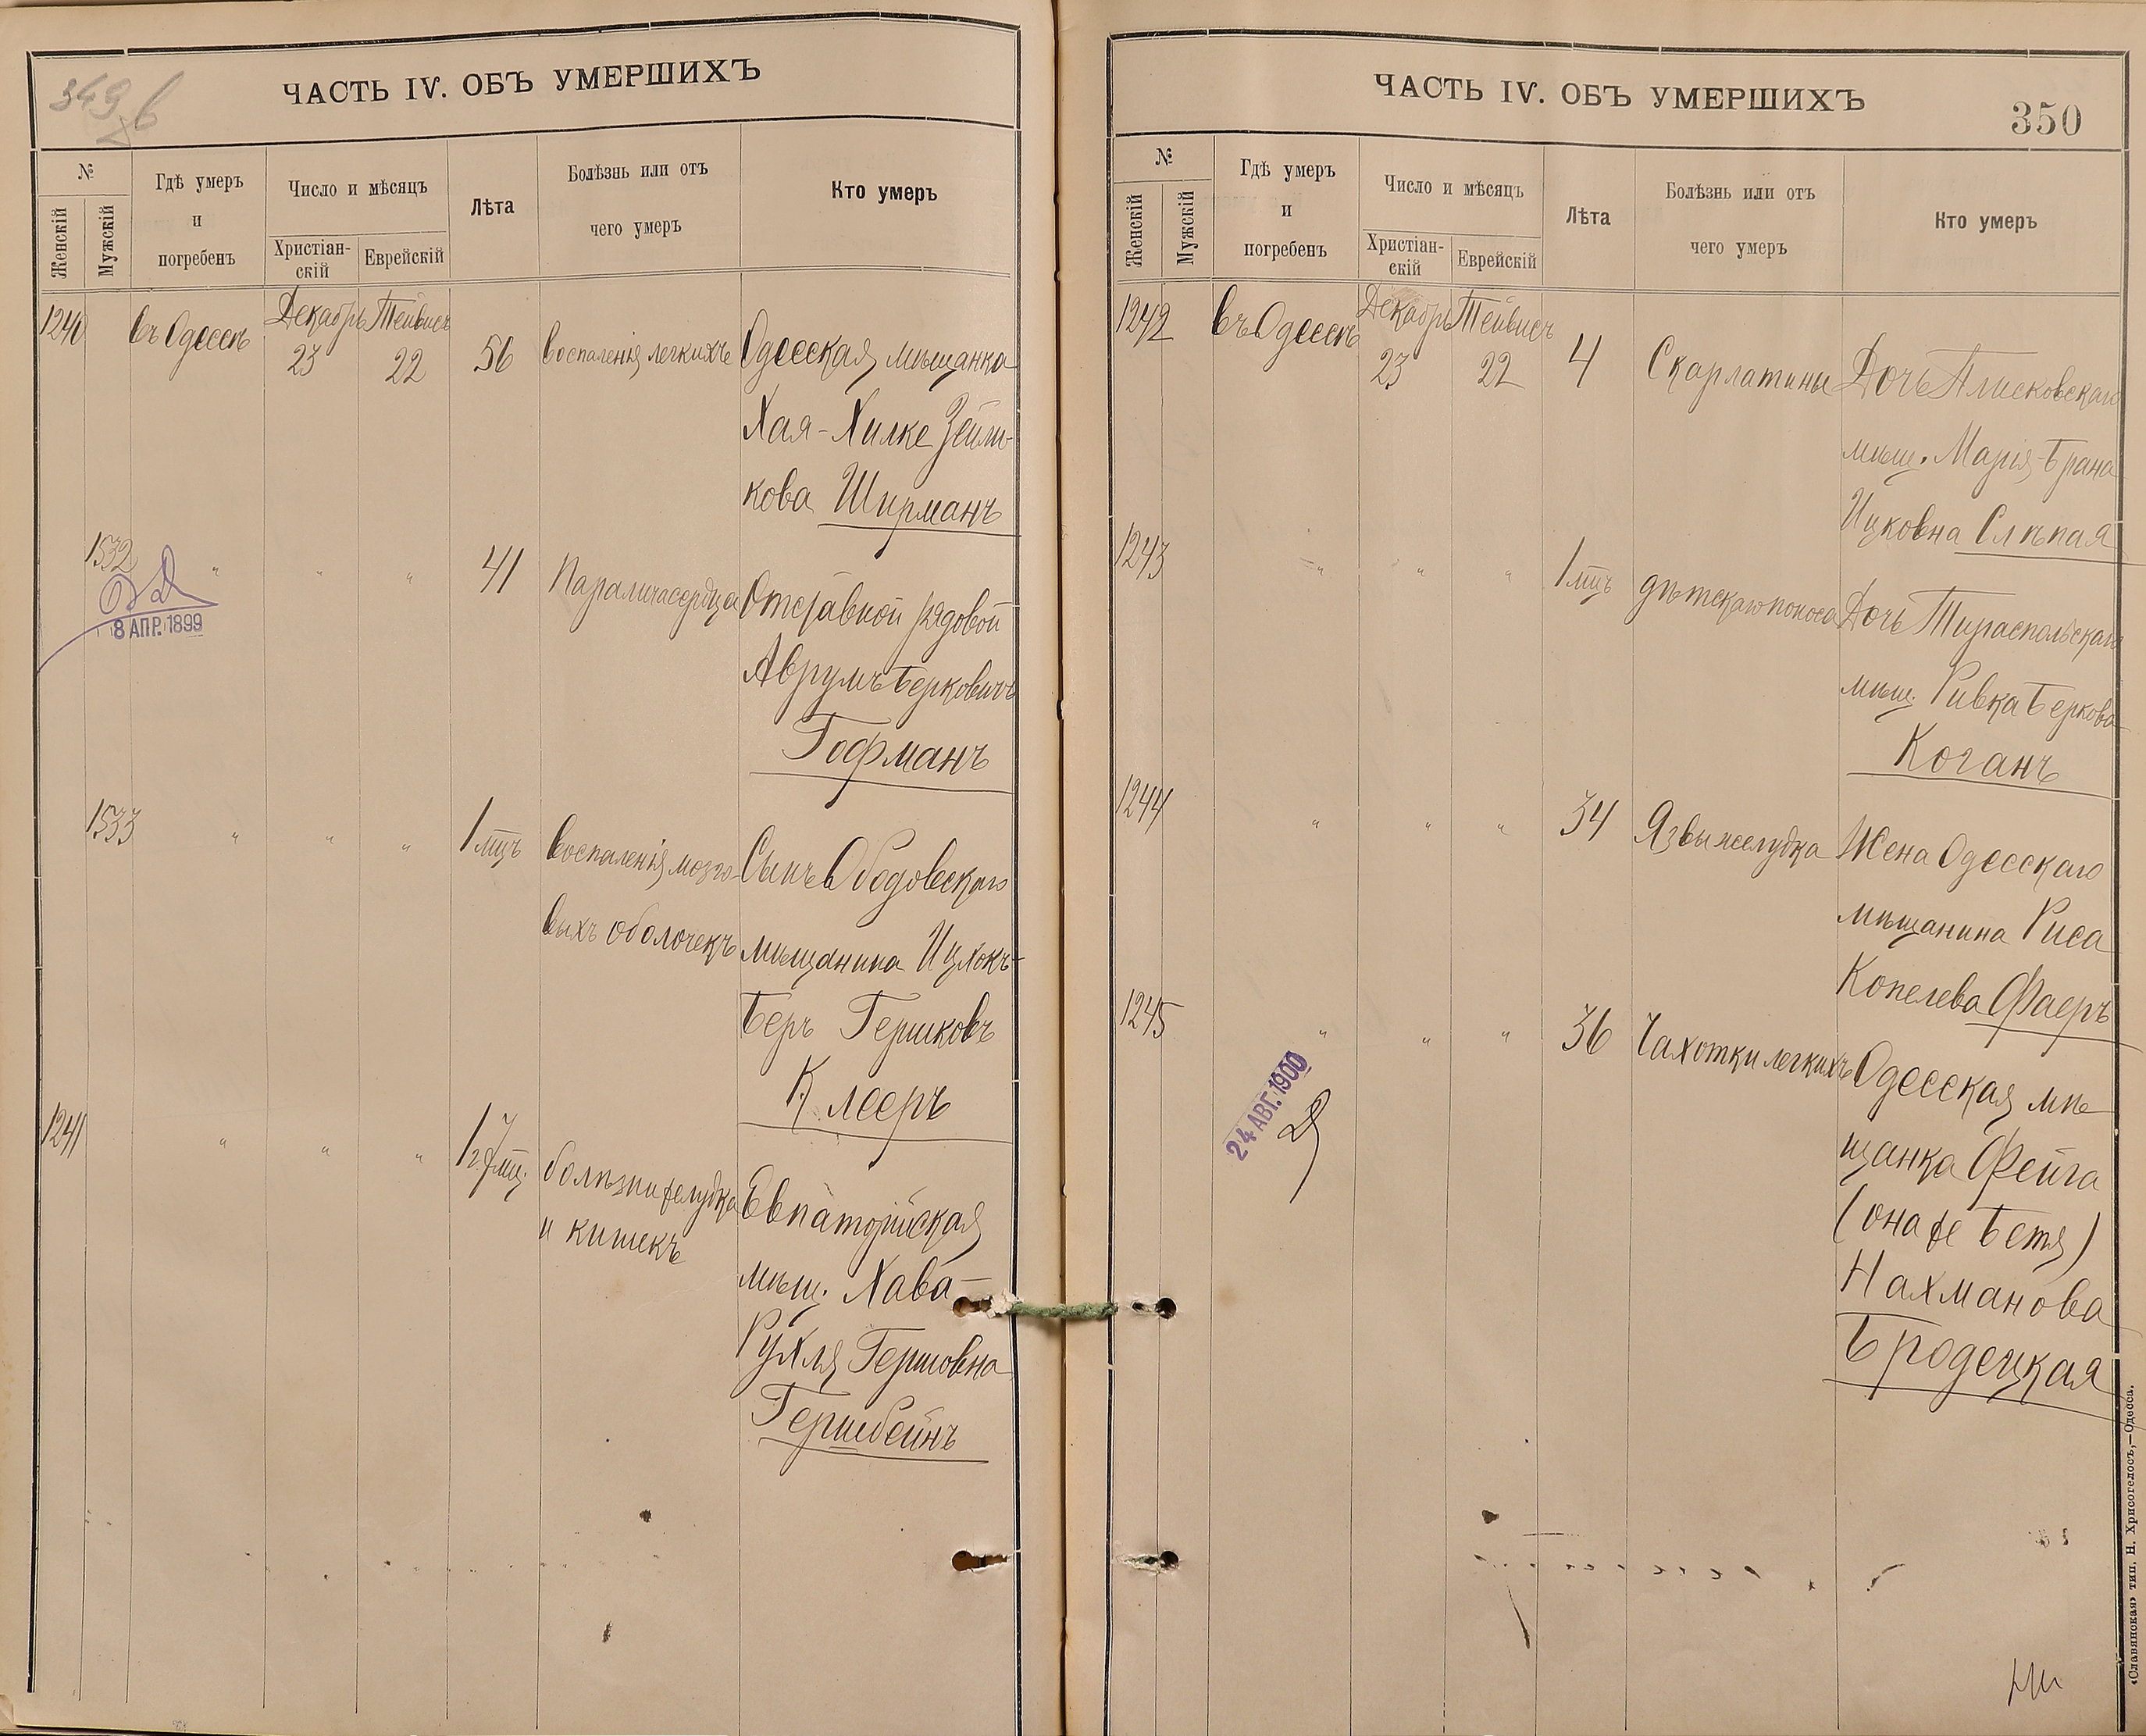 349 в
ЧАСТЬ IV. ОБЪ УМЕРШИХЪ
№
Женскій
Мужскій
Гдѣ умеръ
и
погребенъ
Число и мѣсяцъ
Христіан-
скій
Еврейскій
Лѣта
Болѣзнь или отъ
чего умеръ
Кто умеръ
1240 въ Одессѣ Декабрь 23 Тейвисъ 22 56 воспаленія легкихъ Одесская мѣщанка
Хая-Хилке Зейли-
кова Ширманъ
1532 " " " 41 Паралича сердца Отставной рядовой
Аврумъ Берковичъ
Гофманъ
8 АПР. 1899
1533 " " " 1 мцъ воспаленія мозго- Сынъ Ободовскаго
выхъ оболочекъ мѣщанина Ицхокъ-
Беръ Гершковъ
Клееръ
1241 " " " 1 г. 7 мц. болѣзни желудка Евпаторійская
и кишекъ мѣщ. Хава-
Рухля Гершовна
Гершбейнъ
ЧАСТЬ IV. ОБЪ УМЕРШИХЪ
350
№
Женскій
Мужскій
Гдѣ умеръ
и
погребенъ
Число и мѣсяцъ
Христіан-
скій
Еврейскій
Лѣта
Болѣзнь или отъ
чего умеръ
Кто умеръ
1242 въ Одессѣ Декабрь 23 Тейвисъ 22 4 Скарлатины Дочь Плисковскаго
мѣщ. Марія-Брана
Ицковна Слѣпая
1243 " " " 1 мцъ дѣтскаго поноса Дочь Тираспольскаго
мѣщ. Ривка Беркова
Коганъ
1244 " " " 34 Язвы желудка Жена Одесскаго
мѣщанина Риса
Копелева Фаеръ
1245 " " " 36 Чахотки легкихъ Одесская мѣ
щанка Фейга
(она же Бетя)
Нахманова
Бродецкая
24 АВГ. 1900
«Славянская» тип. Н. Хрисогелосъ,—Одесса.